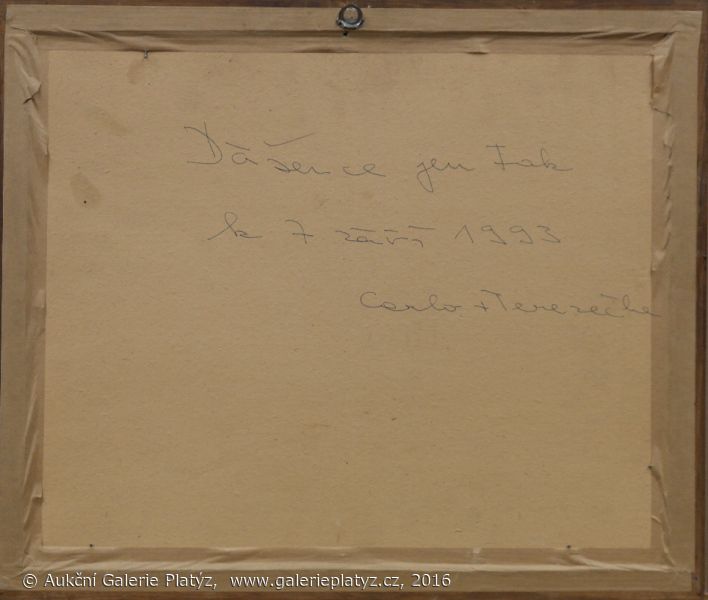 Dášence jen tak
k 7 září 1993
Carlo + Terezečka
© Aukční Galerie Platýz, www.galerieplatyz.cz, 2016